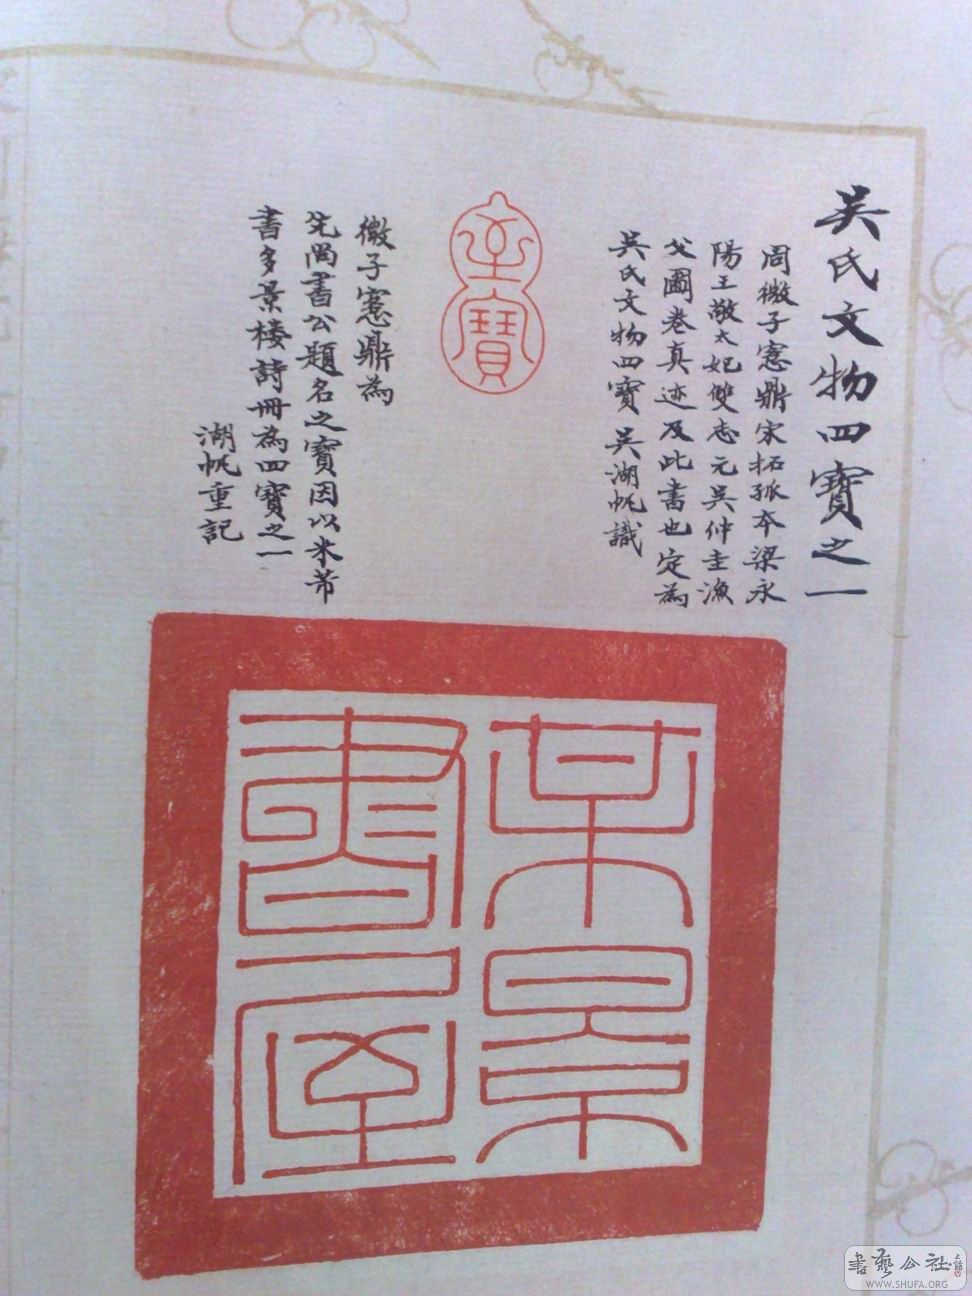 吳氏文物四寶之一
周微子愙鼎宋拓孤本梁永
陽王敬太妃雙志元吳仲圭漁
父圖卷真迹及此書也定為
吳氏文物四寶 吳湖帆識
至寶
微子愙鼎為
先尚書公題名之寶因以米芾
書多景楼詩冊為四寶之一
湖帆重記
某景
書屋
書藝公社
WWW.SHUFA.ORG